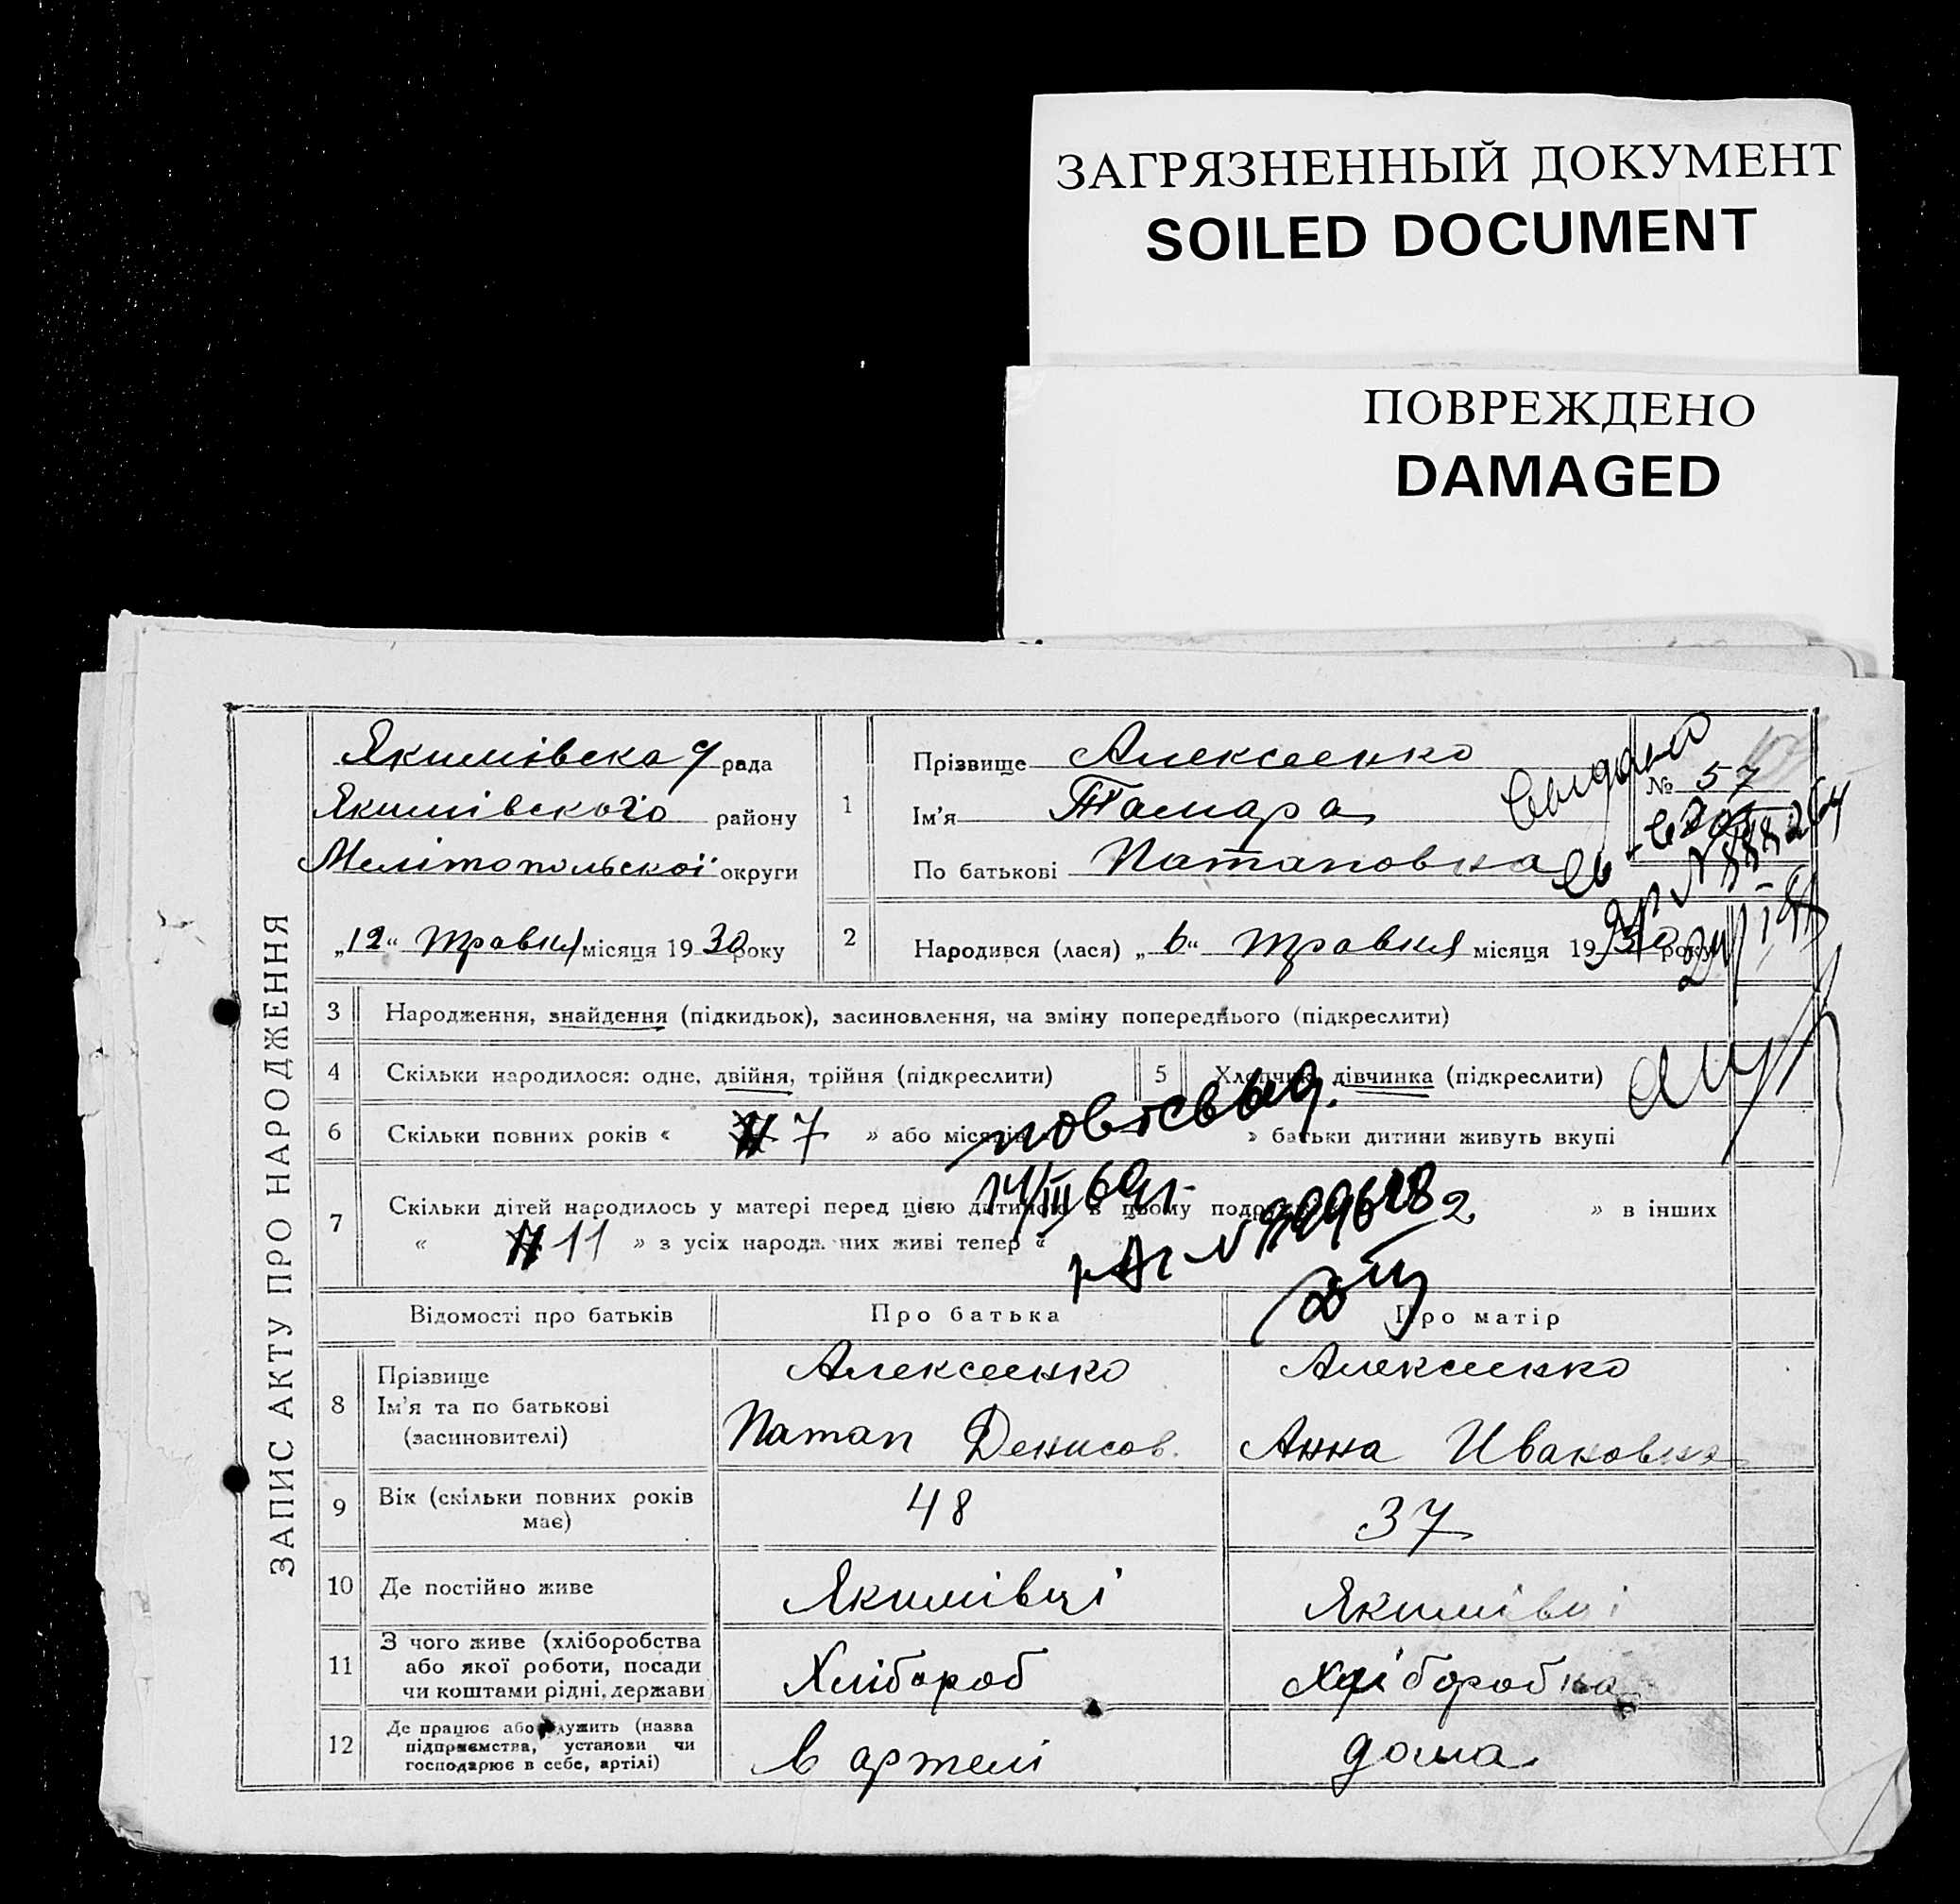 ЗАГРЯЗНЕННЫЙ ДОКУМЕНТ
SOILED DOCUMENT
ПОВРЕЖДЕНО
DAMAGED
ЗАПИС АКТУ ПРО НАРОДЖЕННЯ
Якимівська рада
Якимівського району
Мелітопольскої округи
„12“ травня місяця 1930 року
1
Прізвище Алексеенко
Ім’я Тамара
По батькові Патаповна
№ 57
2
Народився (лася) „6“ травня місяця 1930 року
3
Народження, знайдення (підкидьок), засиновлення, на зміну попереднього (підкреслити)
4
Скільки народилося: одне, двійня, трійня (підкреслити)
5
Хлопчик, дівчинка (підкреслити)
6
Скільки повних років « 7 » або місяців » батьки дитини живуть вкупі
7
Скільки дітей народилось у матері перед цією дитиною в цьому » в інших
« 11 » з усіх народжених живі тепер «
14/III 69
Відомості про батьків
Про батька
Про матір
8
Прізвище
Ім’я та по батькові
(засиновителі)
Алексеенко
Патап Денисов.
Алексеенко
Анна Ивановна
9
Вік (скільки повних років
має)
48
37
10
Де постійно живе
Якимівці
Якимівці
11
З чого живе (хліборобства
або якої роботи, посади
чи коштами рідні, держави
Хлібороб
Хліборобка
12
Де працює або служить (назва
підприємства, установи чи
господарює в себе, артілі)
в артелі
дома